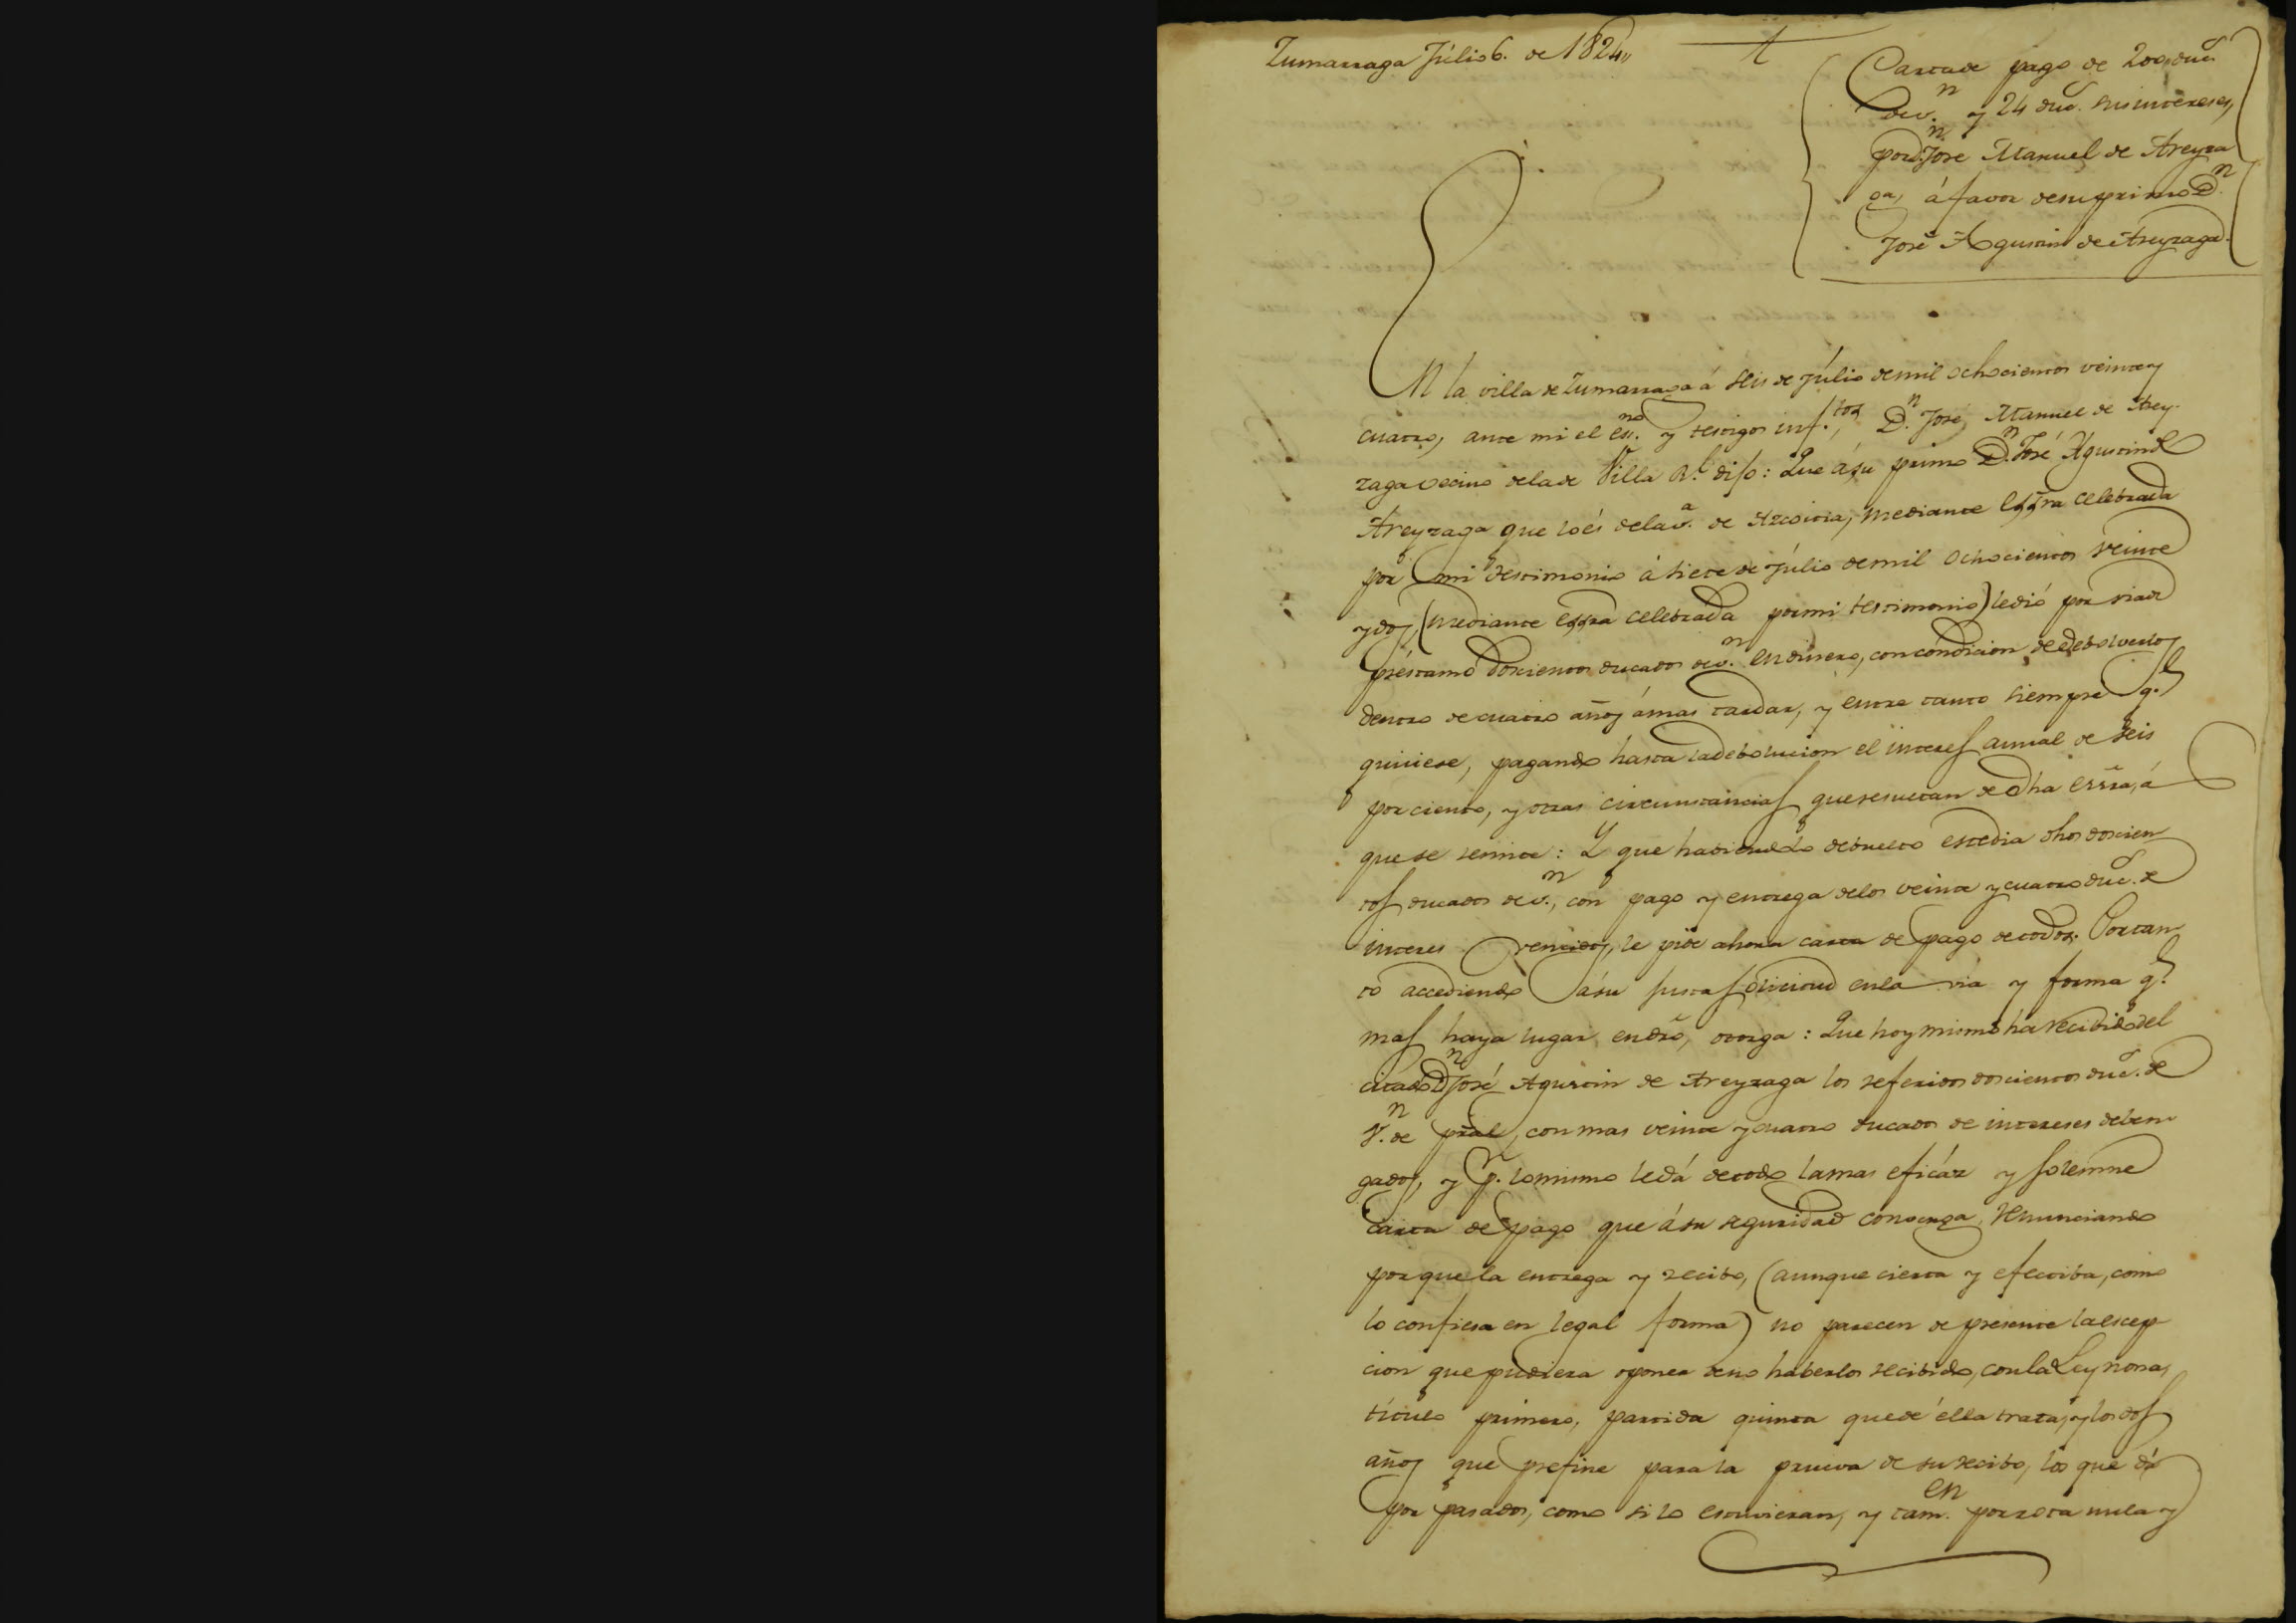 Zumarraga Júlio 6. de 1824,,
Carta de pago de 200, duc.s
de v.n y 24 duc.s sus intereses,
por D.n Jose Manuel de Areyza
ga, á favor de su primo D.n
José Agustin de Areyzaga.
En la villa de Zumarraga á seis de Júlio de mil ochocientos veinte y
cuatro, ante mi el ess.no y testigos inf.tos, D.n José Manuel de Arey-
zaga vecino de la de Villa R.l dijo: Que á su primo D.n José Agustin de
Areyzaga que lo és de la v.a de Azcoitia, mediante essra celebrada
por mi testimonio á siete de Júlio de mil ochocientos veinte
y dos, (mediante essra celebrada por mi testimonio) le dió por via de
préstamo doscientos ducados de v.n en dinero, con condicion de debolverlos
dentro de cuatro años á mas tardar, y entre tanto siempre q.e
quisiese, pagando hasta la debolucion el interes annual de seis
por ciento, y otras circunstancias que resultan de dha essra, á
que se remite: Y que habiendole debuelto este dia dhos doscien
tos ducados de v.n, con pago y entrega de los veinte y cuatro duc.s de
interes vencidos, le pide ahora carta de pago de todos. Por tan
to accediendo á su justa solicitud en la via y forma q.e
mas haya lugar en dro, otorga: Que hoy mismo ha recibido del
citado D.n José Agustin de Areyzaga los referidos doscientos duc.s de
v.n de pral, con mas veinte y cuatro ducados de intereses deben
gados, y p.r lo mismo le dá de todo la mas eficáz y solemne
carta de pago que á su seguridad convenga, renunciando
por que la entrega y recibo, (aunque cierta y efectiba, como
lo confiesa en legal forma) no parecen de presente la escep
cion que pudiera oponer de no haberlos recibido, con la Ley nona,
título primero, partida quinta que de élla trata, y los dos
años que prefine para la prueva de su recibo, los que dá
por pasados, como si lo estuvieran, y tam.en por rota nula y